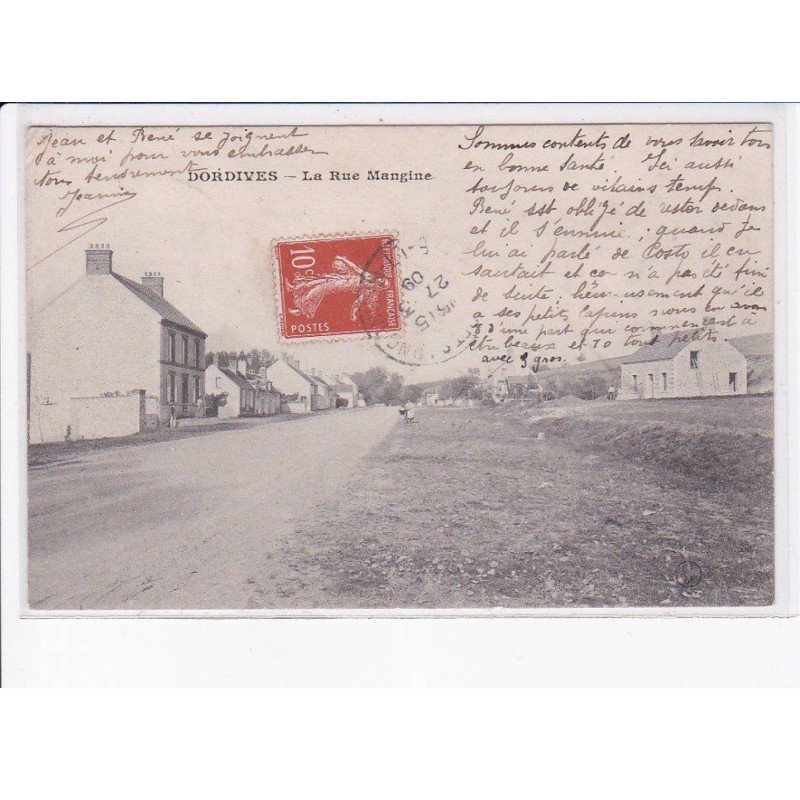 Jean et René se joignent
à moi pour vous embrasser
tous tendrement
Jeanne
DORDIVES — La Rue Mangine
10c
REPUBLIQUE FRANÇAISE
POSTES
15
27
09
Sommes contents de vous savoir tous
en bonne santé. Ici aussi
toujours de vilains temps.
René est obligé de rester dedans
et il s'ennuie ; quand je
lui ai parlé de il en
sautait et ce n'a pas été fini
de suite, heureusement qu'il
a ses petits lapins nous en avons
8 d'une part qui commencent à
être beaux et 10 tout petits.
avec 3 gros.